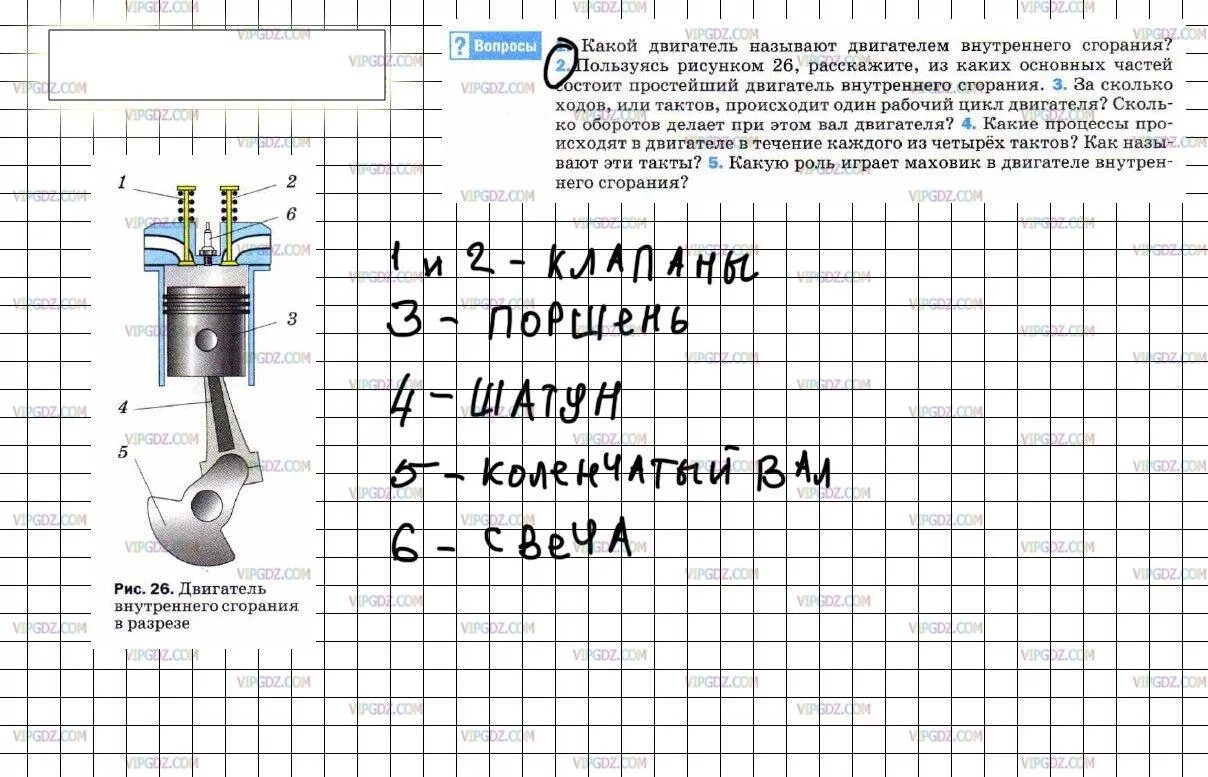 ? Вопросы
1. Какой двигатель называют двигателем внутреннего сгорания?
2. Пользуясь рисунком 26, расскажите, из каких основных частей
состоит простейший двигатель внутреннего сгорания. 3. За сколько
ходов, или тактов, происходит один рабочий цикл двигателя? Сколь-
ко оборотов делает при этом вал двигателя? 4. Какие процессы про-
исходят в двигателе в течение каждого из четырёх тактов? Как назы-
вают эти такты? 5. Какую роль играет маховик в двигателе внутрен-
него сгорания?
1
2
6
3
4
5
Рис. 26. Двигатель
внутреннего сгорания
в разрезе
1 и 2 - КЛАПАНЫ
3 - ПОРШЕНЬ
4 - ШАТУН
5 - КОЛЕНЧАТЫЙ ВАЛ
6 - СВЕЧА
VIPGDZ.COM